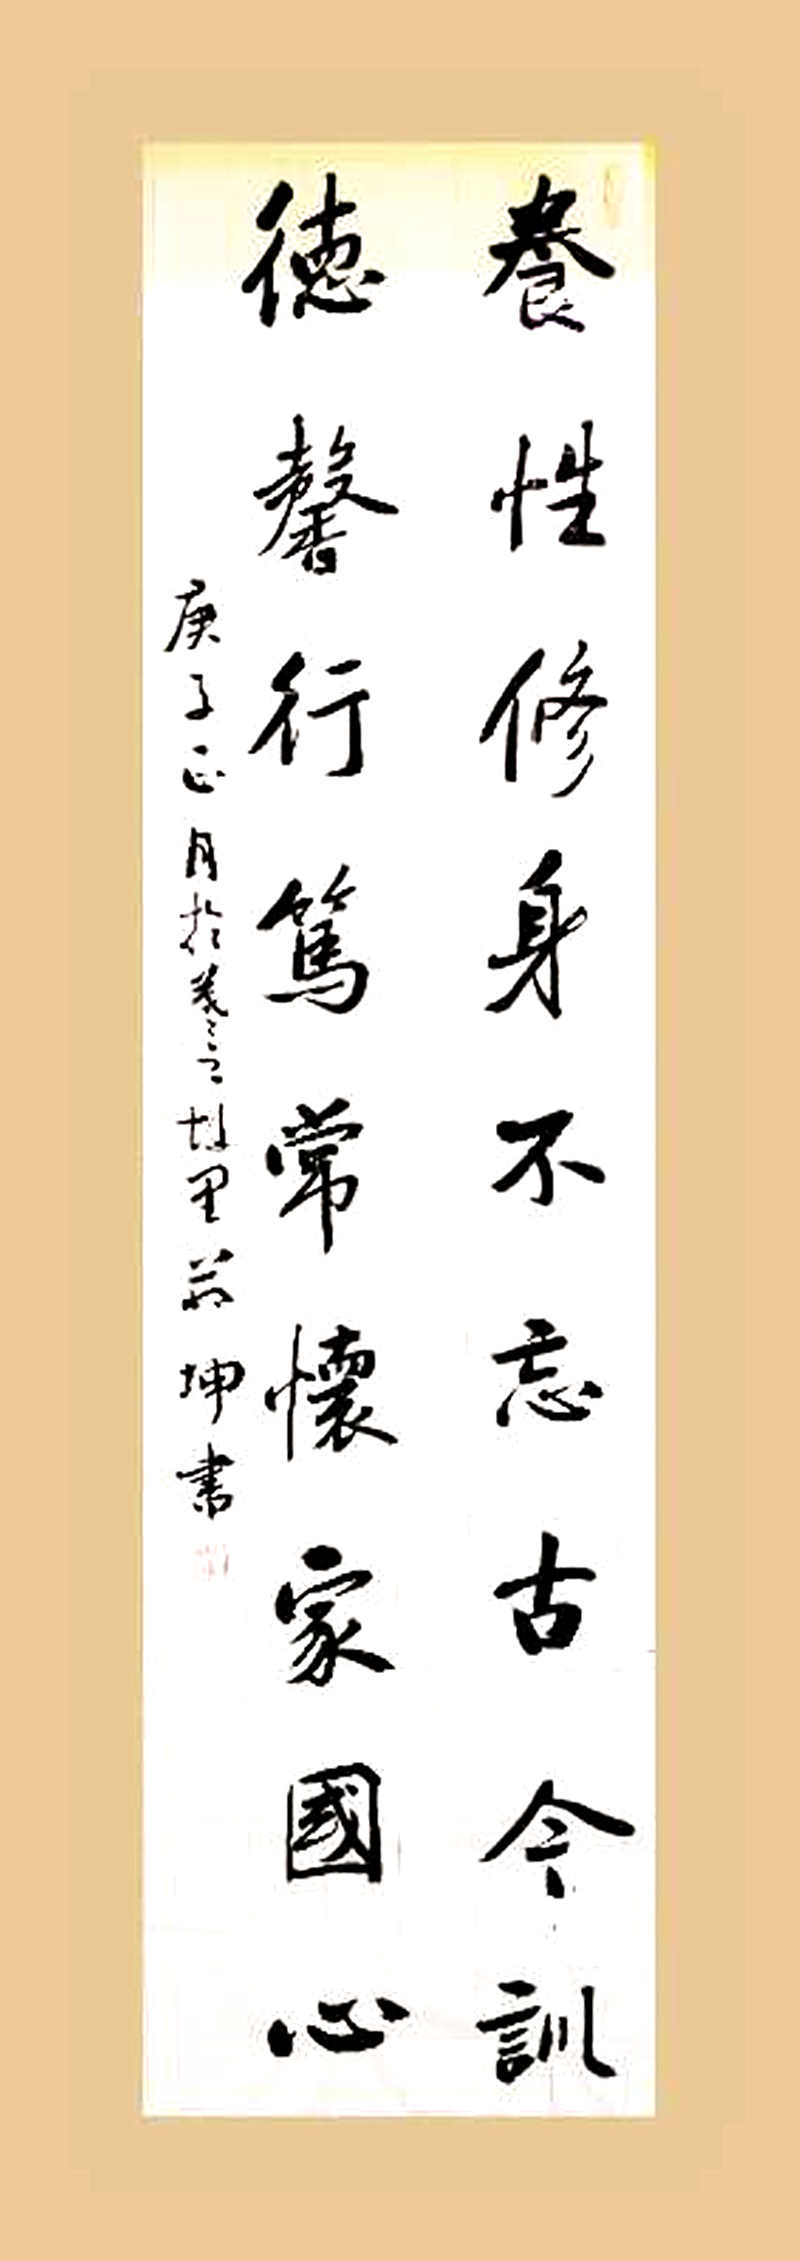 養性修身不忘古今訓
德馨行篤常懷家國心
庚子正月於羲之故里若坤書